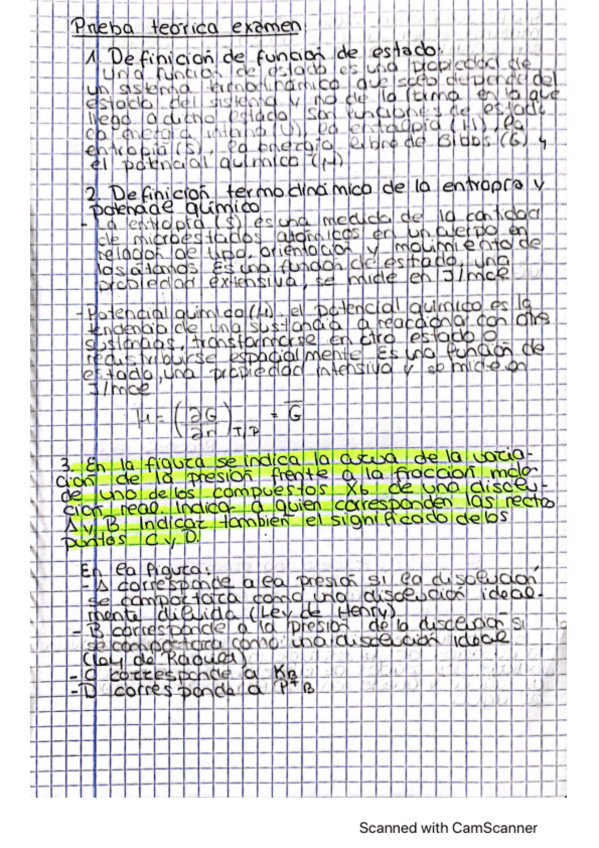 Prueba teórica examen
1. Definición de función de estado:
Una función de estado es una propiedad de
un sistema termodinámico que solo depende del
estado del sistema y no de la forma en la que
llega a dicho estado. Son funciones de estado
la energía interna (U), la entalpía (H), la
entropía (S), la energía libre de Gibbs (G) y
el potencial químico (μ)
2. Definición termodinámico de la entropía y
potencial químico
- La entropía (S) es una medida de la cantidad
de microestados atómicos en un cuerpo en
relación de tipo, orientación y movimiento de
los átomos. Es una función de estado, una
propiedad extensiva, se mide en J/mol
- Potencial químico (μ). el potencial químico es la
tendencia de una sustancia a reaccionar con otras
sustancias, transformarse en otro estado o
redistribuirse espacialmente. Es una función de
estado, una propiedad intensiva y se mide en
J/mol
μ = (∂G/∂n)T,P = G̅
3. En la figura se indica la curva de la varia-
ción de la presión frente a la fracción molar
de uno de los compuestos Xb de una disolu-
ción real. Indica a quien corresponden las rectas
A y B. Indicar también el significado de los
puntos C y D.
En la figura:
- A corresponde a la presión si la disolución
se comportara como una disolución ideal-
mente diluida (Ley de Henry)
- B corresponde a la presión de la disolución si
se comportara como una disolución ideal
(Ley de Raoult)
- C corresponde a KB
- D corresponde a P*B
Scanned with CamScanner